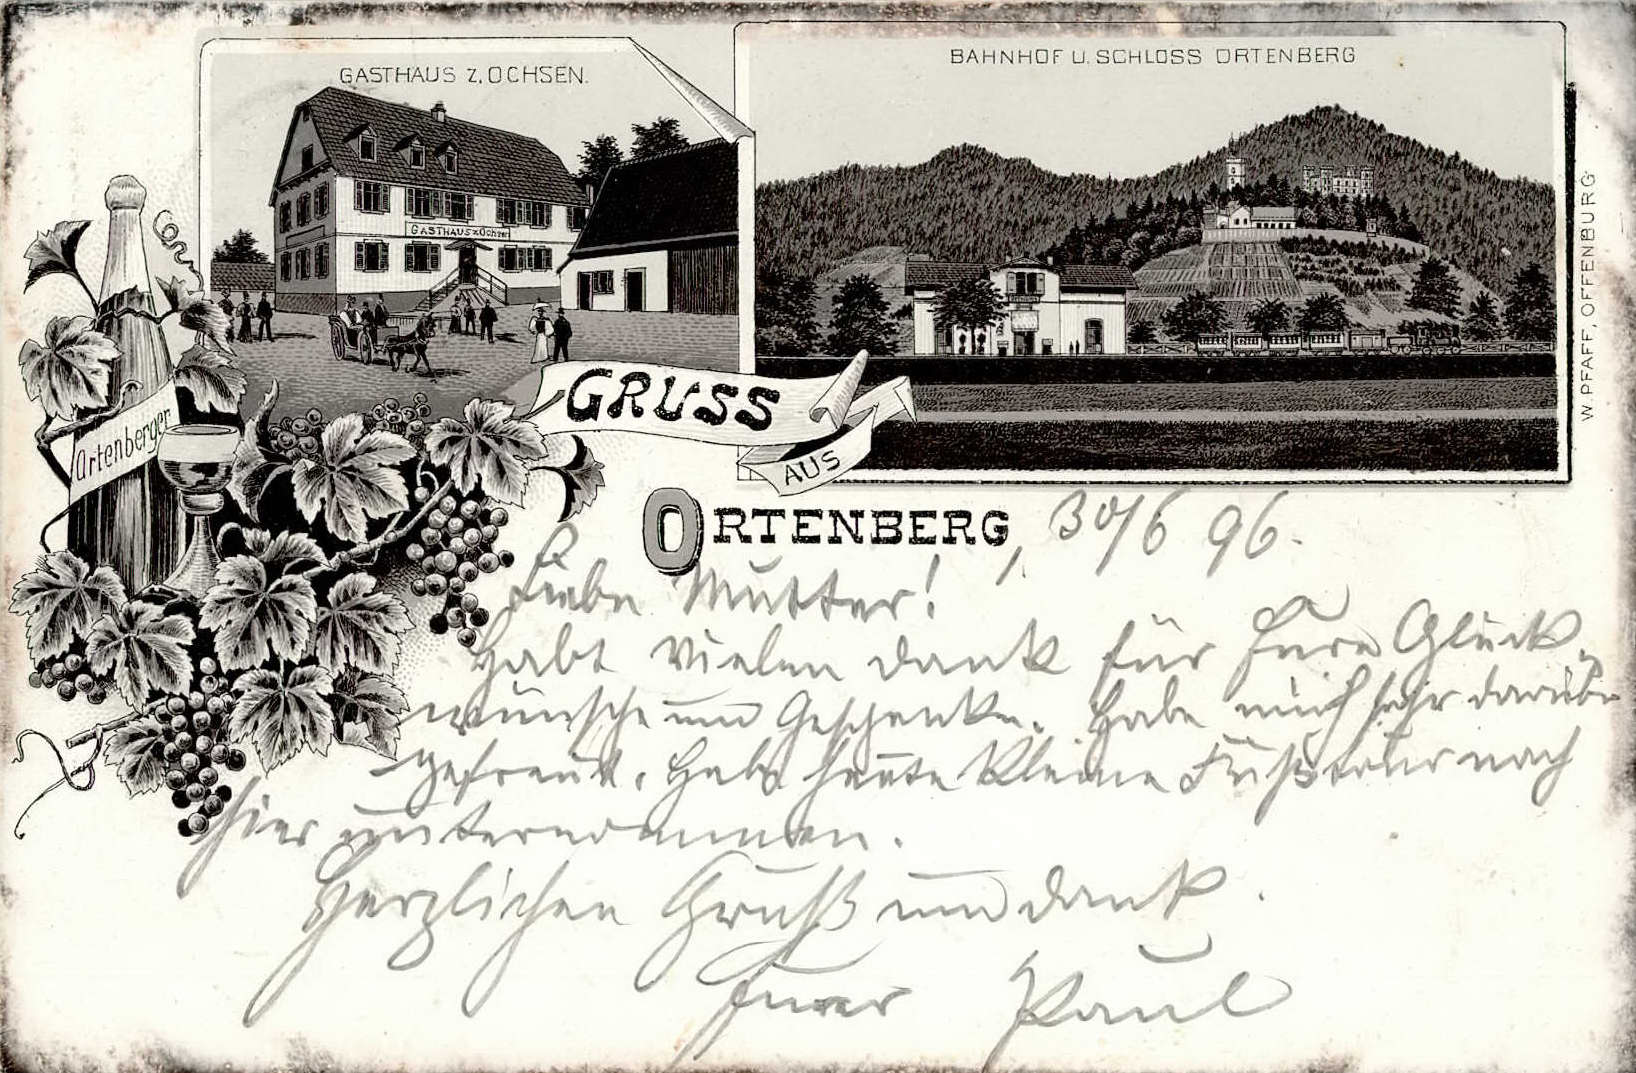 GASTHAUS Z. OCHSEN.
BAHNHOF U. SCHLOSS ORTENBERG
GASTHAUS z. Ochsen
W. PFAFF, OFFENBURG
Ortenberger
GRUSS
AUS
ORTENBERG, 30/6 96.
Liebe Mutter!
Habt vielen Dank für Eure Glück-
wünsche und Geschenke. Habe mich sehr darüber
gefreut. Habe heute kleine Fußtour nach
hier unternommen.
Herzlichen Gruß und Dank.
Euer Paul